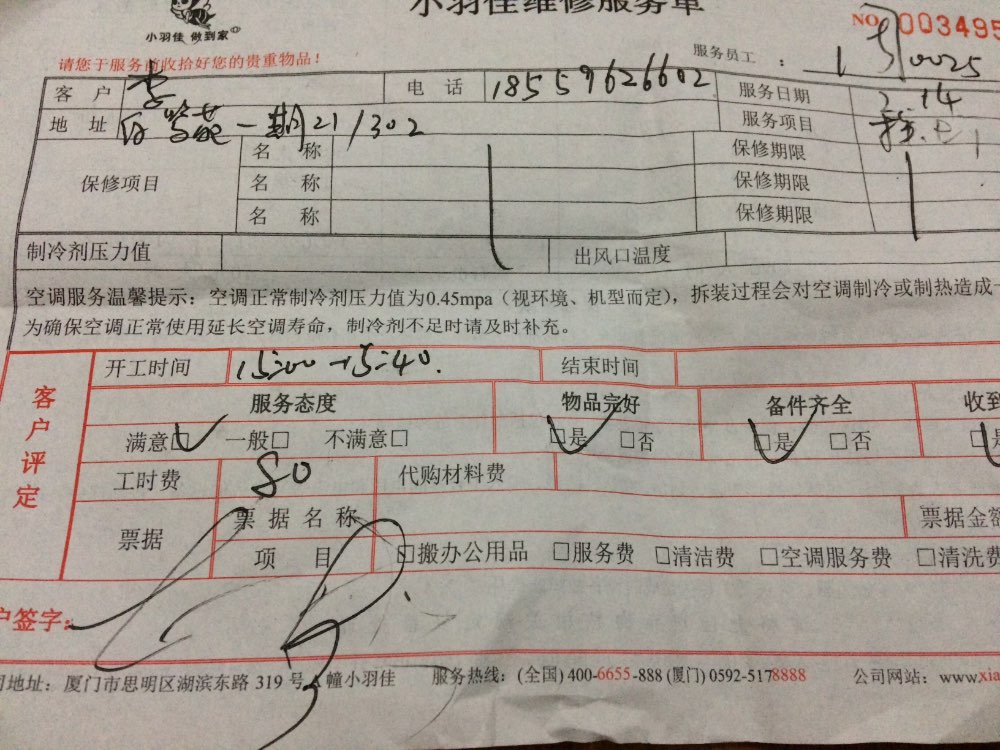 小羽佳维修服务单
NO 003495
小羽佳 做到家
请您于服务前收拾好您的贵重物品!
服务员工 : 0025
客 户 李 电 话 18559626602 服务日期 2.14
地 址 一期21/302 服务项目
保修项目 名 称 保修期限
名 称 保修期限
名 称 保修期限
制冷剂压力值 出风口温度
空调服务温馨提示:空调正常制冷剂压力值为0.45mpa(视环境、机型而定),拆装过程会对空调制冷或制热造成
为确保空调正常使用延长空调寿命,制冷剂不足时请及时补充。
客户评定
开工时间 15:00-15:40. 结束时间
服务态度 物品完好 备件齐全 收到
满意□ 一般□ 不满意□ □是 □否 □是 □否 □是
工时费 80 代购材料费
票据 票据名称 票据金额
项 目 □搬办公用品 □服务费 □清洁费 □空调服务费 □清洗费
户签字:
司地址:厦门市思明区湖滨东路 319 号 幢小羽佳 服务热线:(全国) 400-6655-888 (厦门) 0592-5178888 公司网站:www.xia